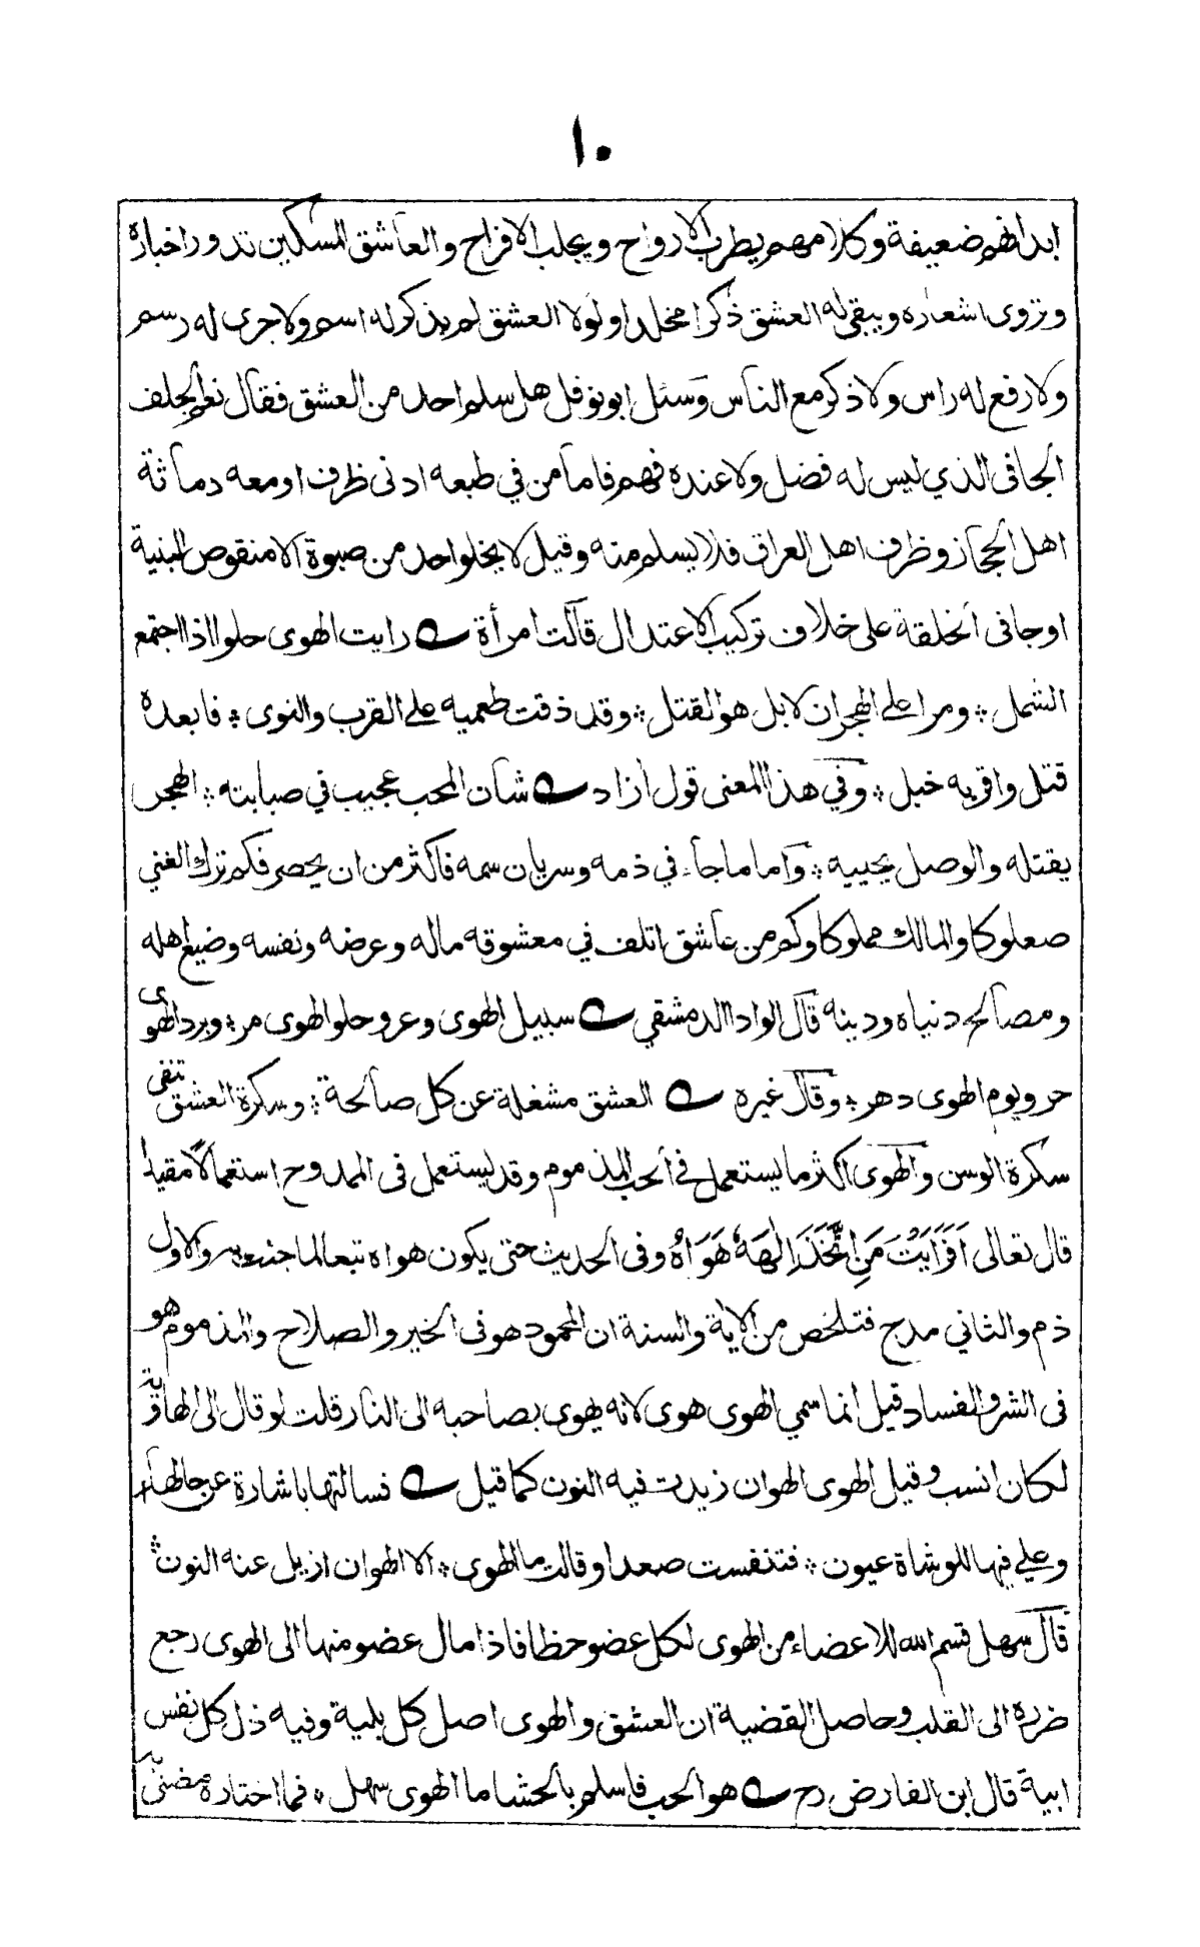 ١٠
ابدانهم ضعيفة وكلامهم يطرب الارواح ويجلب الافراح والعاشق المسكين تدور اخباره
وتروى اشعاره ويبقى له العشق ذكرا مخلدا ولولا العشق لم يذكر له اسم ولا جرى له رسم
ولا رفع له راس ولا ذكر مع الناس وسئل ابو نوفل هل سلم احد من العشق فقال نعم الجلف
الجافى الذي ليس له فضل ولا عنده فهم فاما من في طبعه ادنى ظرف او معه دماثة
اهل الحجاز وظرف اهل العراق فلا يسلم منه وقيل لا يخلو احد من صبوة الا منقوص البنية
او جافى الخلقة على خلاف تركيب الاعتدال قالت امرأة رايت الهوى حلوا اذا اجتمع
الشمل ؞ ومرا على الهجران لا بل هو القتل ؞ وقد ذقت طعميه على القرب والنوى ؞ فابعده
قتل واقربه خبل ؞ وفي هذا المعنى قول ازاد شان المحب عجيب في صبابته ؞ الهجر
يقتله والوصل يحييه ؞ واما ما جاء في ذمه وسريان سمه فاكثر من ان يحصر فكم ترك الغني
صعلوكا والمالك مملوكا وكم من عاشق اتلف في معشوقه ماله وعرضه ونفسه وضيع اهله
ومصالح دنياه ودينه قال الواداالدمشقي سبيل الهوى وعر وحلو الهوى مر ؞ وبرد الهوى
حر ويوم الهوى دهر ؞ وقال غيره العشق مشغلة عن كل صالحة ؞ وسكرة العشق تنفى
سكرة الوسن والهوى اكثر ما يستعمل في الحب المذموم وقد يستعمل فى الممدوح استعمالا مقيدا
قال تعالى اَفَرَاَيْتَ مَنِ اتَّخَذَ اِلٰهَهٗ هَوَاهُ وفى الحديث حتى يكون هواه تبعا لما جئت به والاول
ذم والثاني مدح فتلخص من الاية والسنة ان المحمود هو فى الخير والصلاح والمذموم هو
فى الشر والفساد قيل انما سمي الهوى هوى لانه يهوى بصاحبه الى النار قلت لو قال الى الهاوية
لكان انسب وقيل الهوى الهوان زيدت فيه النون كما قيل فسالتها باشارة عن حالها ؞
وعلي فيها للوشاة عيون ؞ فتنفست صعدا وقالت ما الهوى ؞ الا الهوان ازيل عنه النون ؞
قال سهل قسم الله للاعضاء من الهوى لكل عضو حظا فاذا مال عضو منها الى الهوى رجع
ضرره الى القلب وحاصل القضية ان العشق والهوى اصل كل بلية وفيه ذل كل نفس
ابية قال ابن الفارض رح هو الحب فاسلم بالحشا ما الهوى سهل ؞ فما اختاره مضنى به